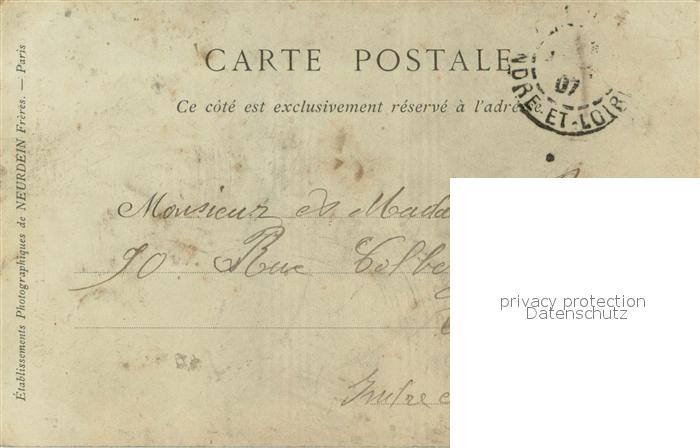 CARTE POSTALE
Ce côté est exclusivement réservé à l'adresse
Établissements Photographiques de NEURDEIN Frères. — Paris
07
NDRE-ET-LOIR
Monsieur et Mada
90 Rue Colbe
Indre e
privacy protection
Datenschutz